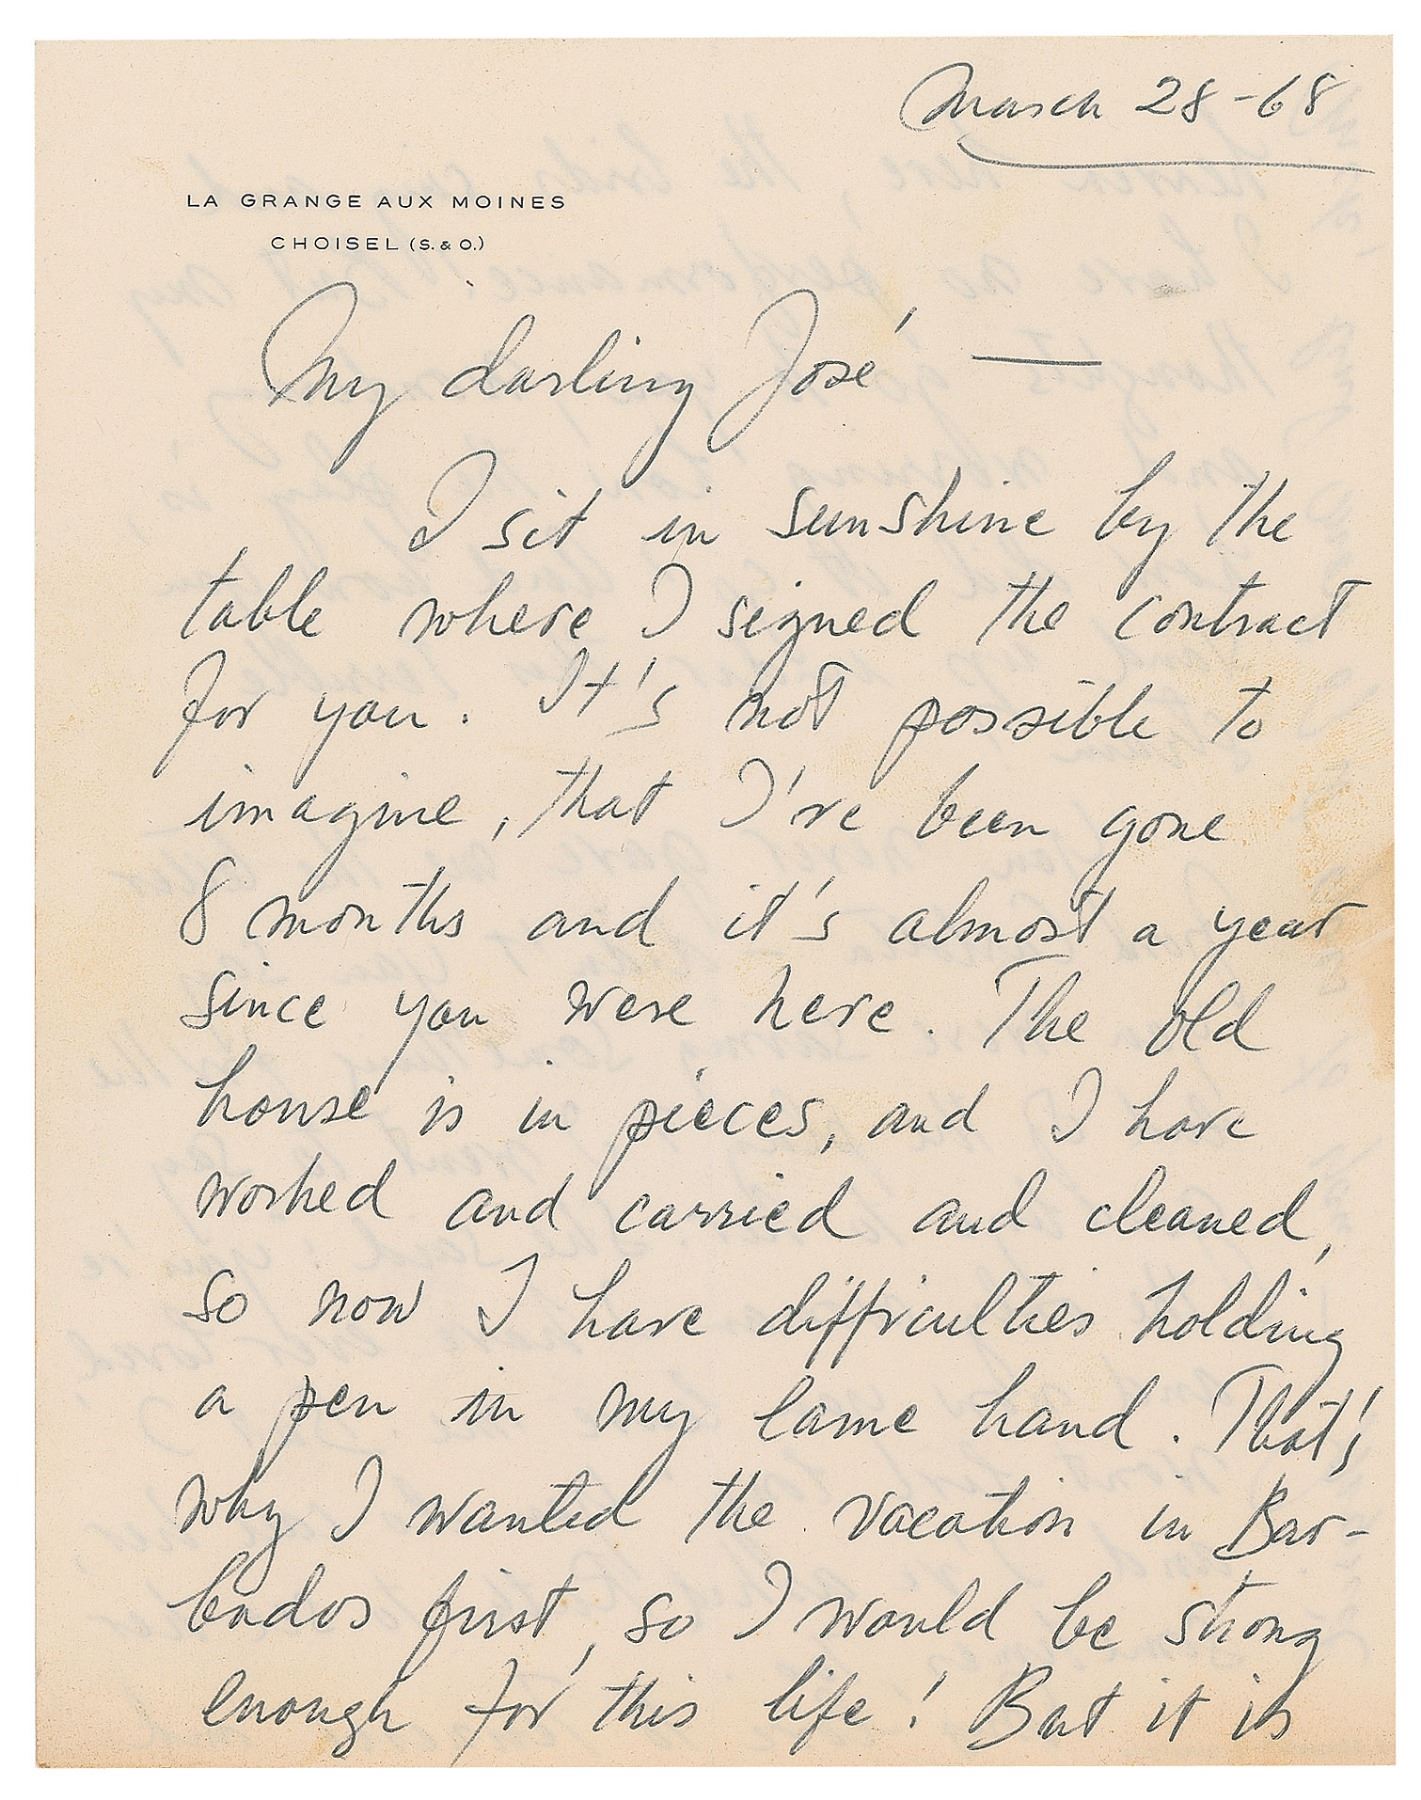 March 28-68
LA GRANGE AUX MOINES
CHOISEL (S. & O.)
My darling José —
I sit in sunshine by the
table where I signed the contract
for you. It's not possible to
imagine, that I've been gone
8 months and it's almost a year
since you were here. The old
house is in pieces, and I have
worked and carried and cleaned,
so now I have difficulties holding
a pen in my lame hand. That's
why I wanted the vacation in Bar-
bados first, so I would be strong
enough for this life! But it is